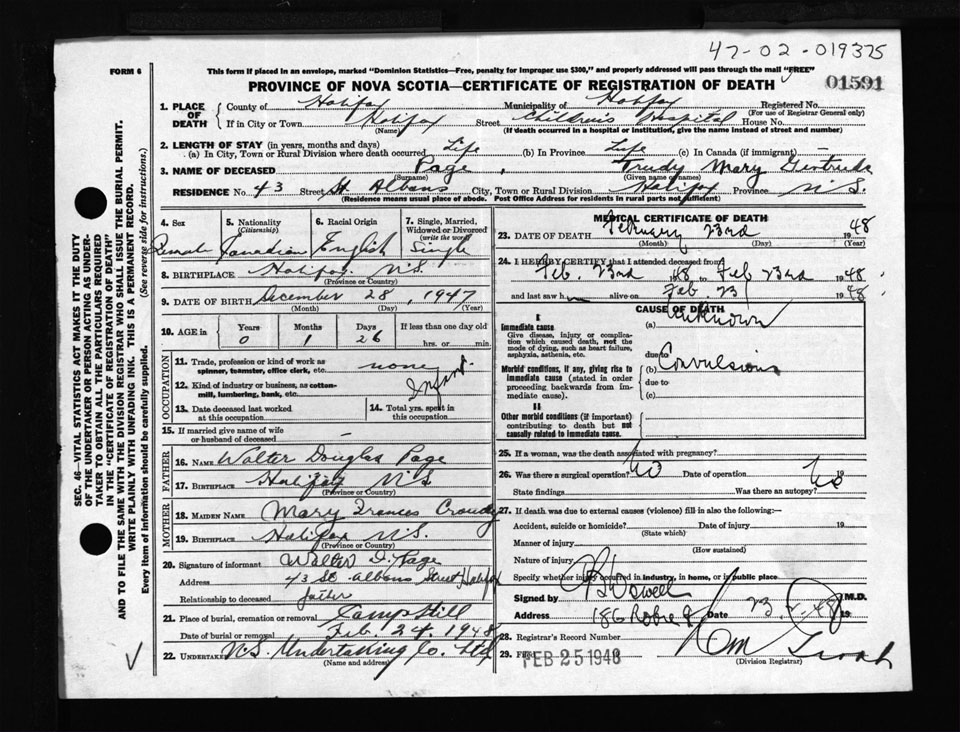 47-02-019375
FORM 6
This form if placed in an envelope, marked "Dominion Statistics—Free, penalty for improper use $300," and properly addressed will pass through the mail "FREE"
PROVINCE OF NOVA SCOTIA—CERTIFICATE OF REGISTRATION OF DEATH
01591
1. PLACE OF DEATH
County of Halifax Municipality of Halifax Registered No.
(For use of Registrar General only)
If in City or Town Halifax Street Children's Hospital House No.
(Name) (If death occurred in a hospital or institution, give the name instead of street and number)
2. LENGTH OF STAY (in years, months and days)
(a) In City, Town or Rural Division where death occurred Life (b) In Province Life (c) In Canada (if immigrant)
3. NAME OF DECEASED Page, Trudy Mary Gertrude
(Surname) (Given name or names)
RESIDENCE No. 43 Street St Albans City, Town or Rural Division Halifax Province N.S.
(Residence means usual place of abode. Post Office Address for residents in rural parts not sufficient)
4. Sex Female
5. Nationality (Citizenship) Canadian
6. Racial Origin English
7. Single, Married, Widowed or Divorced (write the word) Single
8. BIRTHPLACE Halifax N.S.
(Province or Country)
9. DATE OF BIRTH December 28, 1947
(Month) (Day) (Year)
10. AGE in Years Months Days If less than one day old
0 1 26 hrs. or min.
OCCUPATION
11. Trade, profession or kind of work as spinner, teamster, office clerk, etc. none
12. Kind of industry or business, as cotton-mill, lumbering, bank, etc. Infant
13. Date deceased last worked at this occupation
14. Total yrs. spent in this occupation
15. If married give name of wife or husband of deceased —
FATHER
16. NAME Walter Douglas Page
17. BIRTHPLACE Halifax N.S.
(Province or Country)
MOTHER
18. MAIDEN NAME Mary Frances
19. BIRTHPLACE Halifax N.S.
(Province or Country)
20. Signature of informant Walter D. Page
Address 43 St. Albans Street Halifax
Relationship to deceased father
21. Place of burial, cremation or removal Camp Hill
Date of burial or removal Feb. 24. 1948
22. UNDERTAKER N.S. Undertaking Co. Ltd
(Name and address)
MEDICAL CERTIFICATE OF DEATH
23. DATE OF DEATH February 23rd 1948
(Month) (Day) (Year)
24. I HEREBY CERTIFY that I attended deceased from
Feb. 23rd 1948 to Feb 23rd 1948
and last saw h alive on Feb 23 1948
CAUSE OF DEATH
I
Immediate cause
Give disease, injury or complication which caused death, not the mode of dying, such as heart failure, asphyxia, asthenia, etc.
(a) Unknown
due to
Morbid conditions, if any, giving rise to immediate cause (stated in order proceeding backwards from immediate cause).
(b) Convulsions
due to
(c)
II
Other morbid conditions (if important) contributing to death but not causally related to immediate cause.
25. If a woman, was the death associated with pregnancy?
26. Was there a surgical operation? No Date of operation 19
State findings Was there an autopsy? No
27. If death was due to external causes (violence) fill in also the following:—
Accident, suicide or homicide? Date of injury 19
(State which)
Manner of injury
(How sustained)
Nature of injury
Specify whether injury occurred in industry, in home, or in public place
Signed by M.D.
Address 186 Date 23. 2. 48 19
28. Registrar's Record Number
29. Filed FEB 25 1948
(Division Registrar)
SEC. 46—VITAL STATISTICS ACT MAKES IT THE DUTY
OF THE UNDERTAKER OR PERSON ACTING AS UNDER-
TAKER TO OBTAIN ALL THE PARTICULARS REQUIRED
IN THE "CERTIFICATE OF REGISTRATION OF DEATH"
AND TO FILE THE SAME WITH THE DIVISION REGISTRAR WHO SHALL ISSUE THE BURIAL PERMIT.
WRITE PLAINLY WITH UNFADING INK. THIS IS A PERMANENT RECORD.
Every item of information should be carefully supplied. (See reverse side for instructions.)